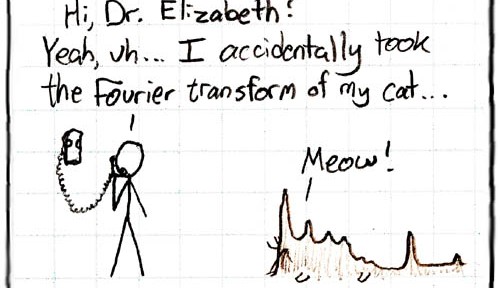 Hi, Dr. Elizabeth?
Yeah, uh... I accidentally took
the Fourier transform of my cat...
Meow!